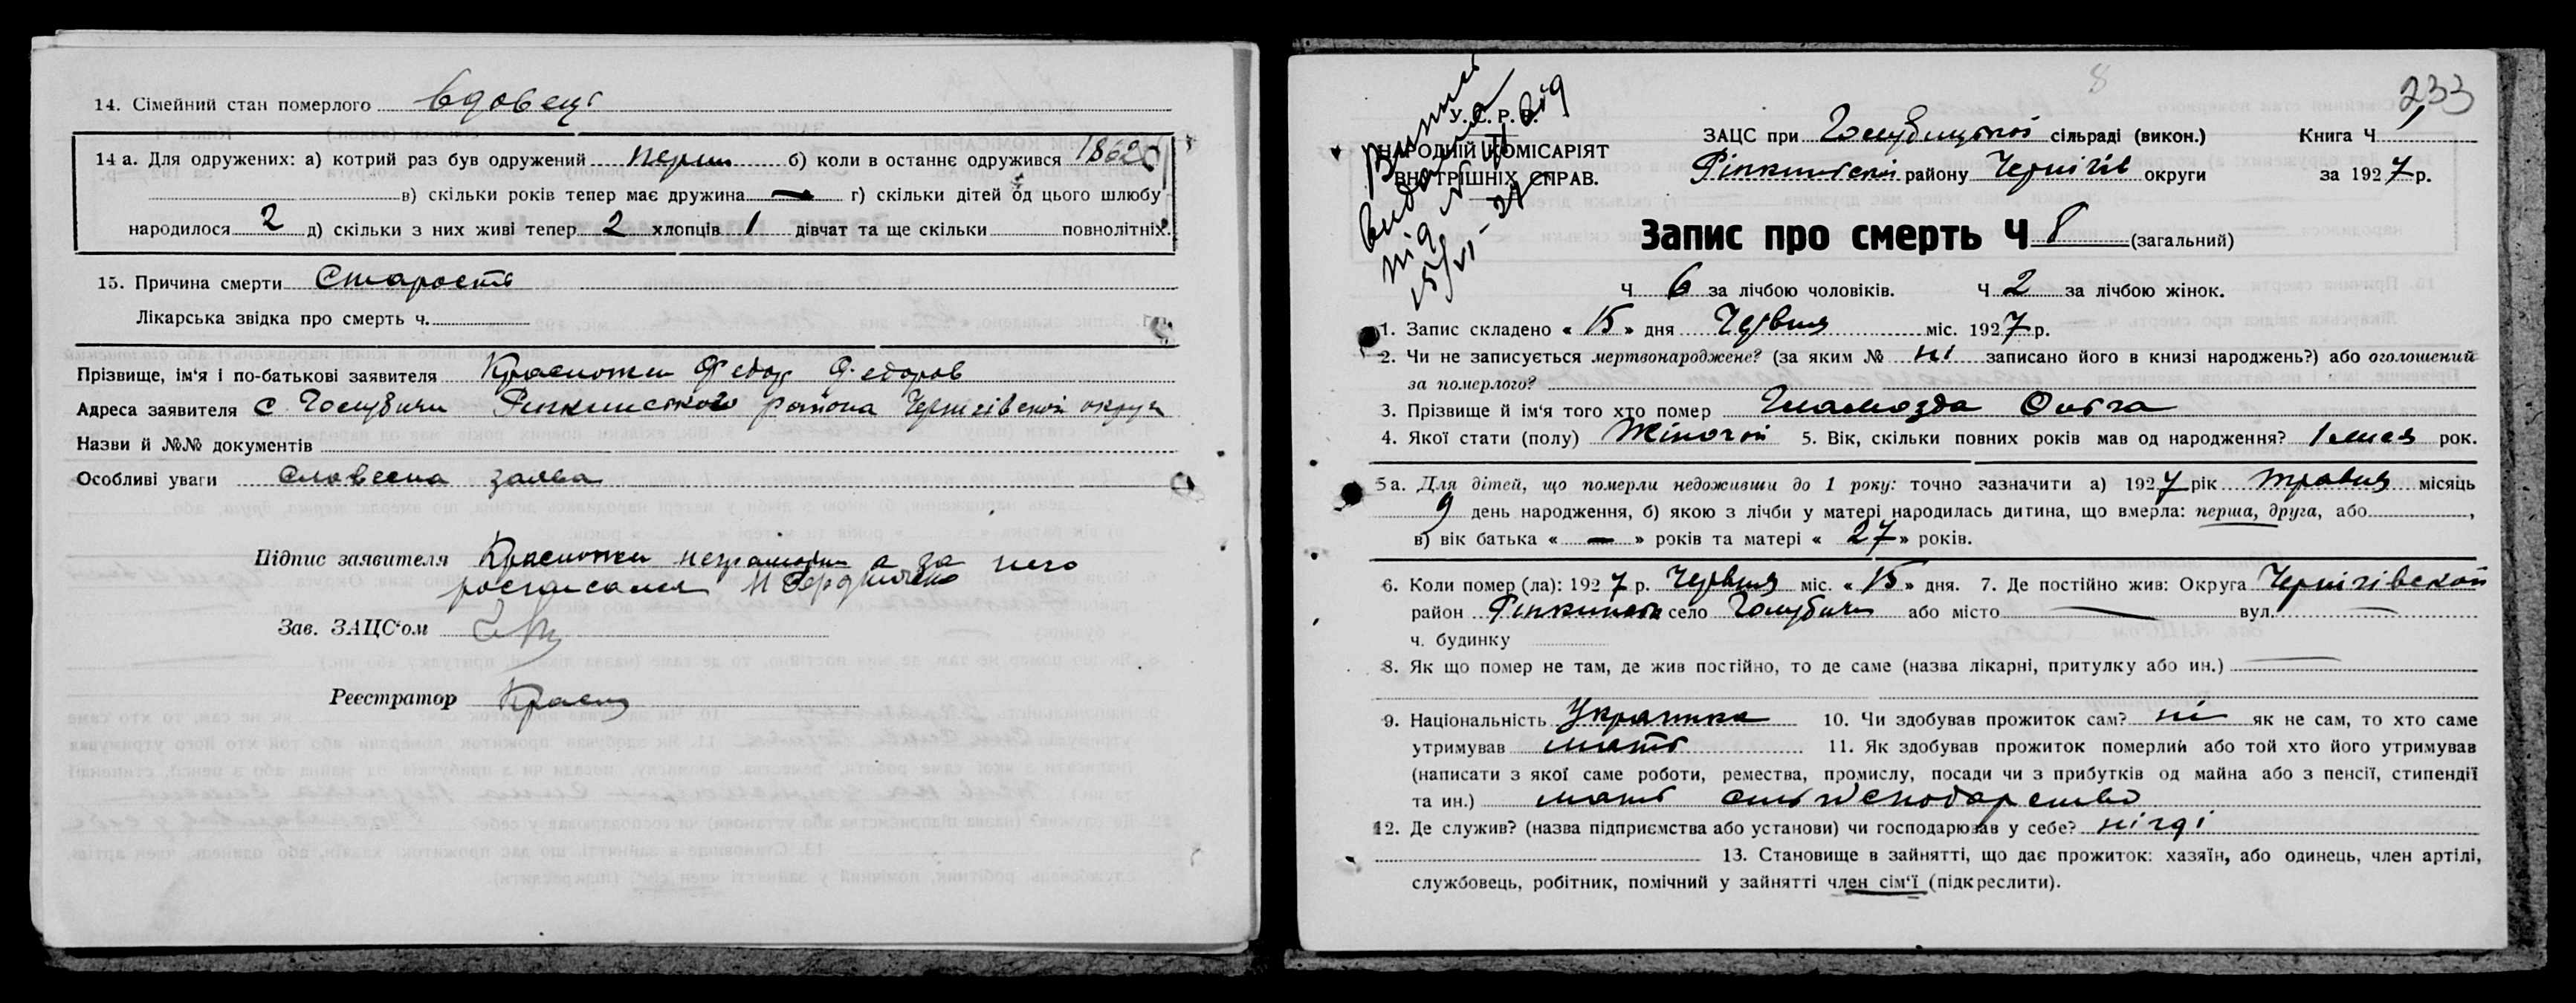 14. Сімейний стан померлого вдовець
14 а. Для одружених: а) котрий раз був одружений перш б) коли в останнє одружився 1862
в) скільки років тепер має дружина — г) скільки дітей од цього шлюбу
народилося 2 д) скільки з них живі тепер 2 хлопців 1 дівчат та ще скільки повнолітніх.
15. Причина смерти Старость
Лікарська звідка про смерть ч.
Прізвище, ім'я і по-батькові заявителя Красножон Федор Федоров
Адреса заявителя С Голубичи Ріпкинського района Чернігівской округи
Назви й №№ документів
Особливі уваги Словесна заява
Підпис заявителя Красножон неграмотн а за него
росписался
Зав. ЗАЦС'ом
Реєстратор
233
8
У. С. Р. Р.
НАРОДНІЙ КОМІСАРІЯТ
ВНУТРІШНІХ СПРАВ.
ЗАЦС при Голубицькой сільраді (викон.) Книга Ч
Ріпкинской району Чернігів округи за 1927 р.
Запис про смерть Ч 8 (загальний)
Ч 6 за лічбою чоловіків. Ч 2 за лічбою жінок.
1. Запис складено « 15 » дня Червня міс. 1927 р.
2. Чи не записується мертвонароджене? (за яким № ні записано його в книзі народжень?) або оголошений
за померлого?
3. Прізвище й ім'я того хто помер Гламозда Ольга
4. Якої стати (полу) Жіночой 5. Вік, скільки повних років мав од народження? 1 мися рок.
5 а. Для дітей, що померли недоживши до 1 року: точно зазначити а) 1927 рік травня місяць
9 день народження, б) якою з лічби у матері народилась дитина, що вмерла: перша, друга, або ,
в) вік батька « — » років та матері « 27 » років.
6. Коли помер (ла): 1927 р. Червня міс. « 15 » дня. 7. Де постійно жив: Округа Чернігівской
район Ріпкинськ село Голубичи або місто — вул. —
ч. будинку
8. Як що помер не там, де жив постійно, то де саме (назва лікарні, притулку або ин.) —
9. Національність Українка 10. Чи здобував прожиток сам? ні як не сам, то хто саме
утримував мать 11. Як здобував прожиток померлий або той хто його утримував
(написати з якої саме роботи, ремества, промислу, посади чи з прибутків од майна або з пенсії, стипендії
та ин.) мать
12. Де служив? (назва підприємства або установи) чи господарював у себе? нігді
13. Становище в зайнятті, що дає прожиток: хазяїн, або одинець, член артілі,
службовець, робітник, помічний у зайнятті член сім'ї (підкреслити).